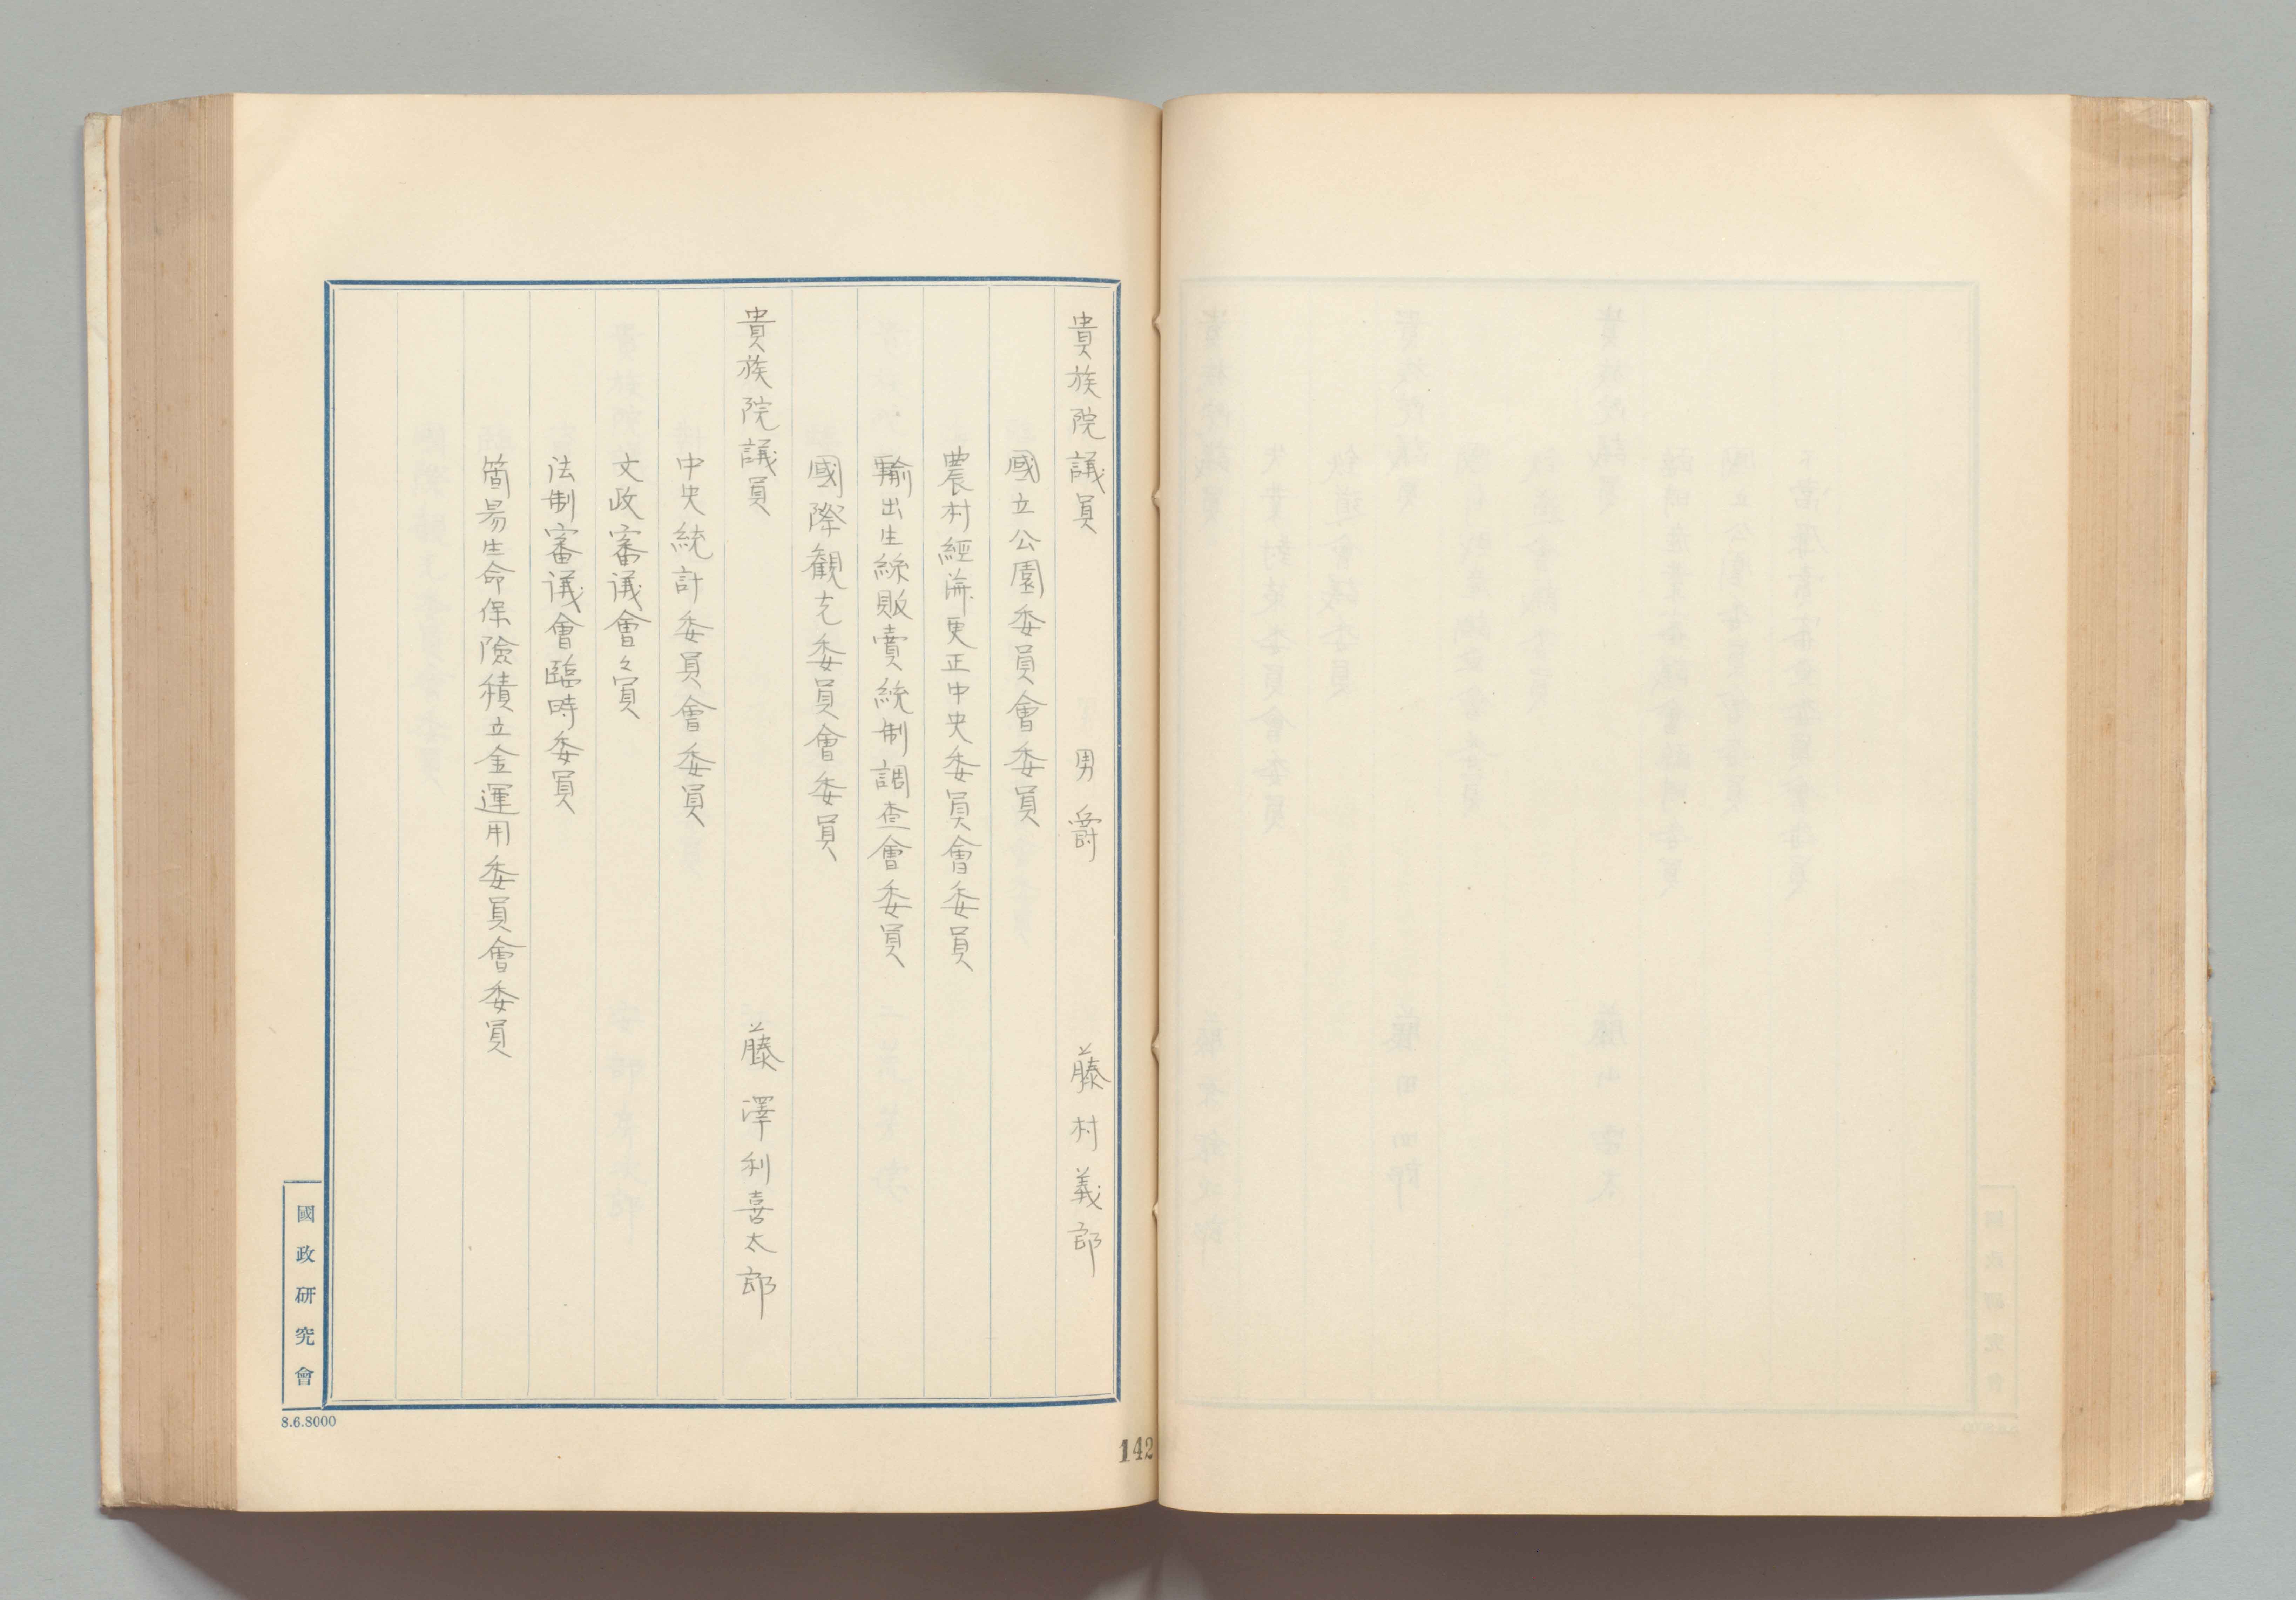 貴族院議員 男爵 藤村義郎
國立公園委員會委員
農村經濟更正中央委員會委員
輸出生絲販賣統制調査會委員
國際観光委員會委員
貴族院議員 藤澤利喜太郎
中央統計委員會委員
文政審議會々員
法制審議會臨時委員
簡易生命保險積立金運用委員會委員
國政研究會
8.6.8000
142